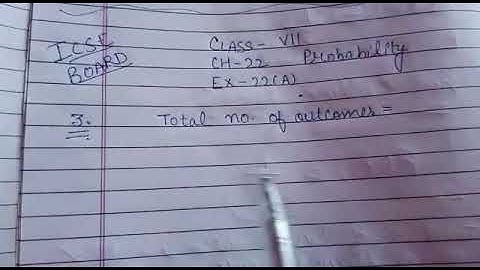 ICSE
BOARD
CLASS - VII
CH-22 Probability
EX-22(A)
3. Total no. of outcomes =